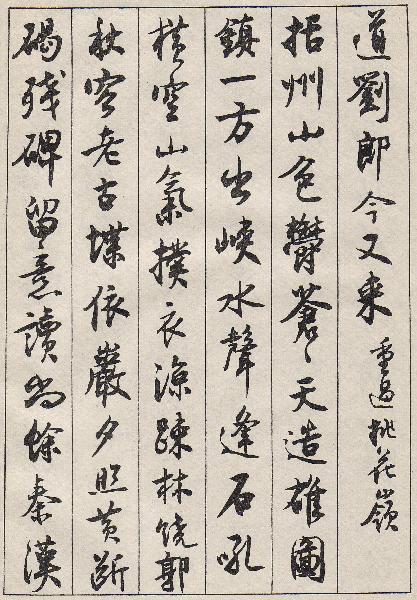 道劉郎今又来 重過桃花嶺
括州山色鬱蒼〻天造雄圖
鎮一方出峽水聲逢石吼
横空山氣撲衣涼疎林饒郭
秋容老古堞依巖夕照黄斷
碣殘碑留意讀尚餘秦漢